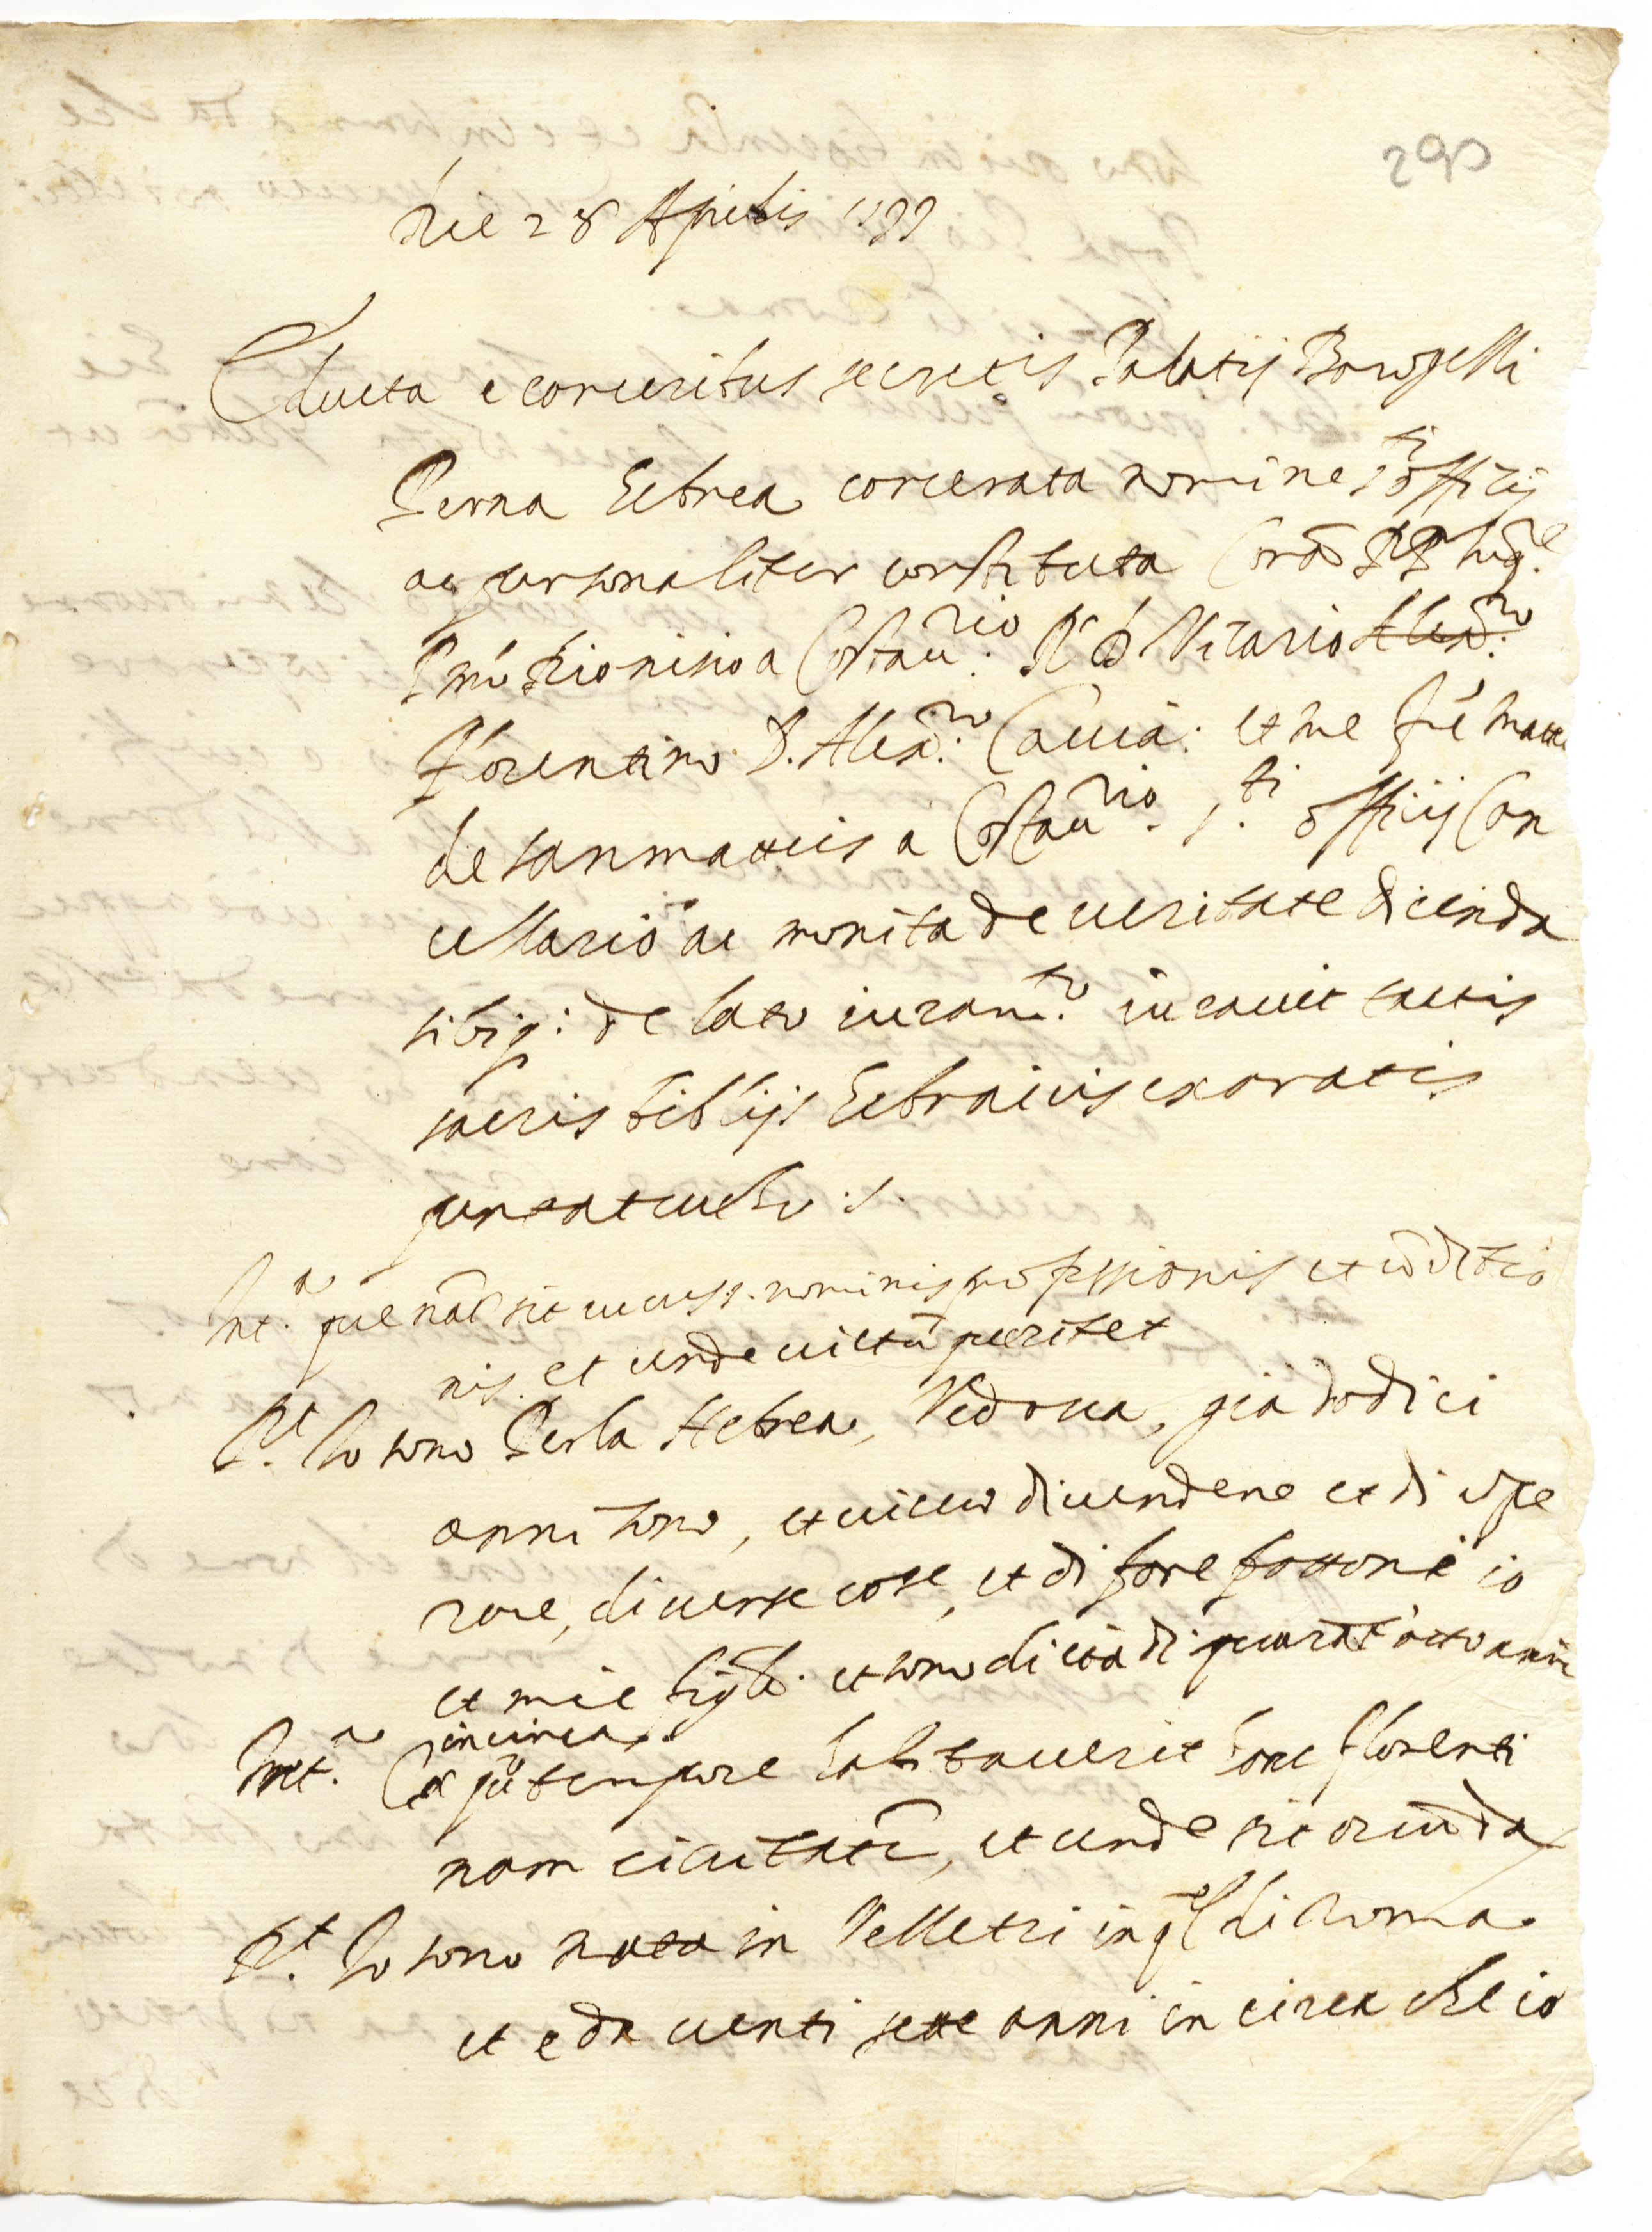 290
Die 28 Aprilis 1599
Educta e carceribus secretis Palatij Bargelli
Perna Hebrea carcerata nomine s.ti officij
ac personaliter constituta Corā
Fr̄e Dionisio a Costacc.rio Vicario Alex.ro
Florentino D. Alex.ro Caccia: et me frē
de sanmattis a Costacc.rio s.ti officij Can
cellario ac monita de ueritate dicenda
sibiq: delato iuram.to iurauit tactis
sacris biblijs Hebraicis exaratis
Int.a que nā sit eius nominis professionis et cōditio
nis. et unde uictū queritet
R.t Io sono Perla Hebrea, Vedoua, gia dodici
anni sono, et uiuo di uendere et di ope
rare, diuerse cose, et di fare fattorie io
et mie figl.e et sono di età di quarāt'otto anni
in circa.
Int.a Ex quo tempore habitauerit hanc florenti
nam ciuitatē, et unde sit oriūda
R.t Io sono nata in Velletri in q.l di Roma.
et e da uenti sette anni in circa che io